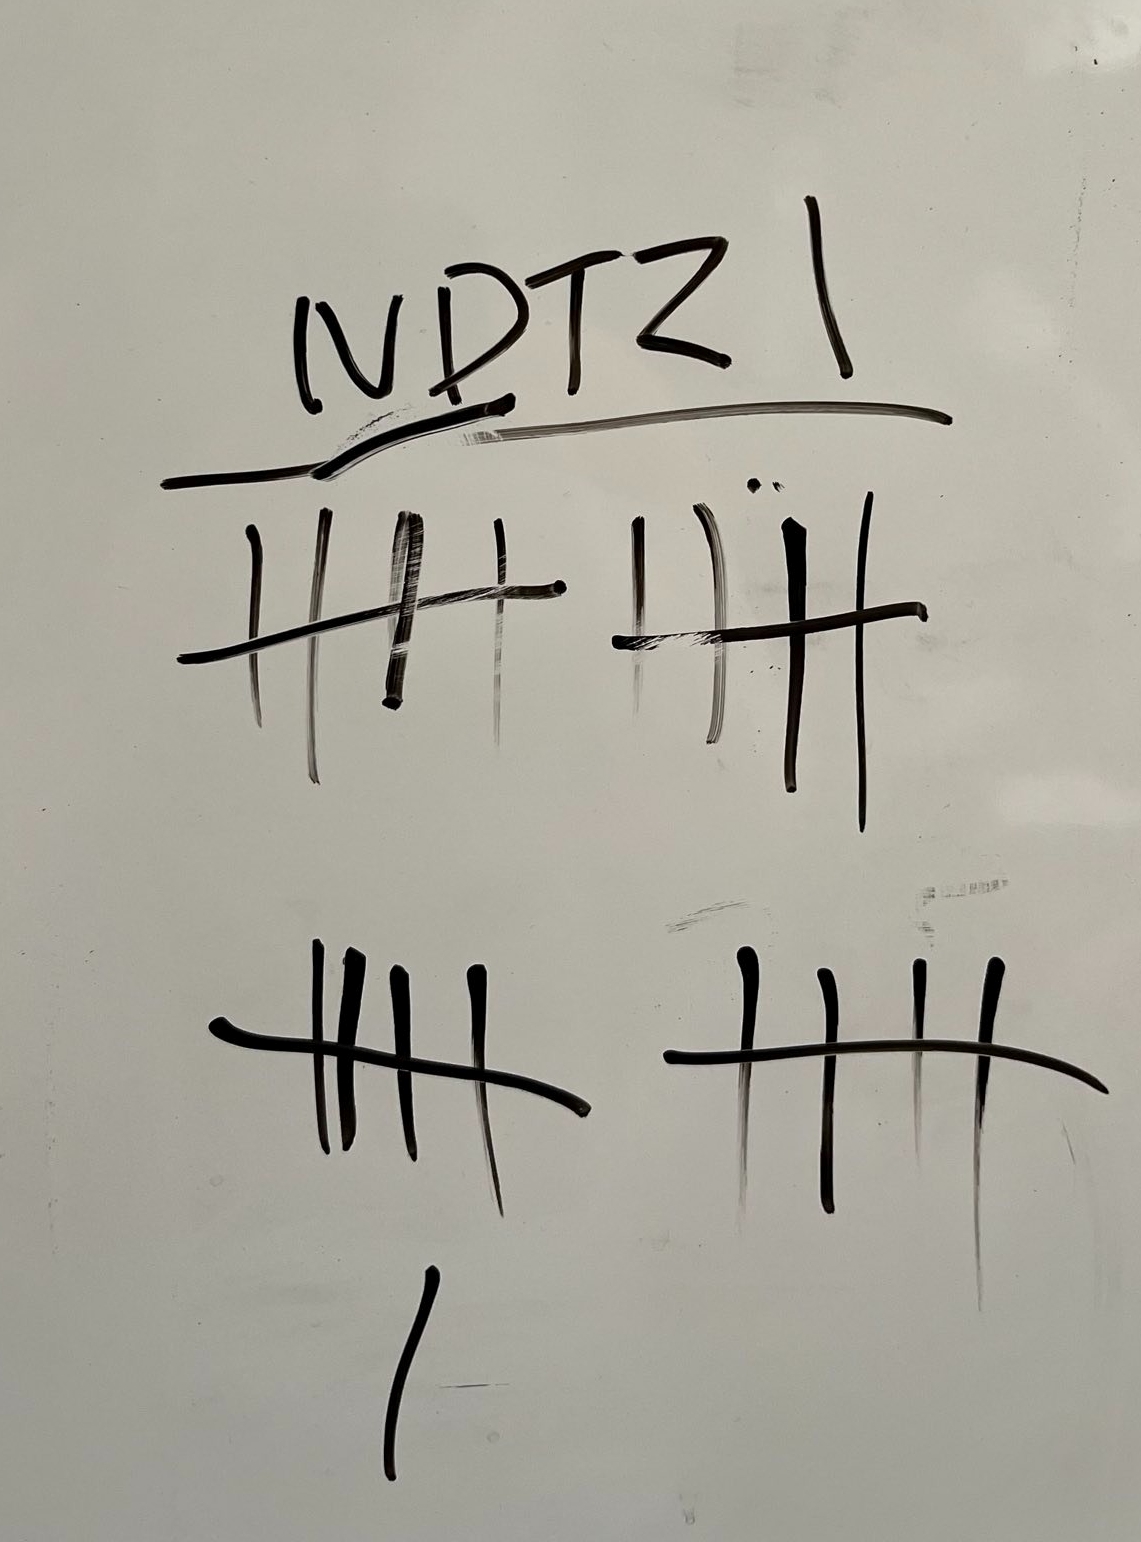 NDTZ |